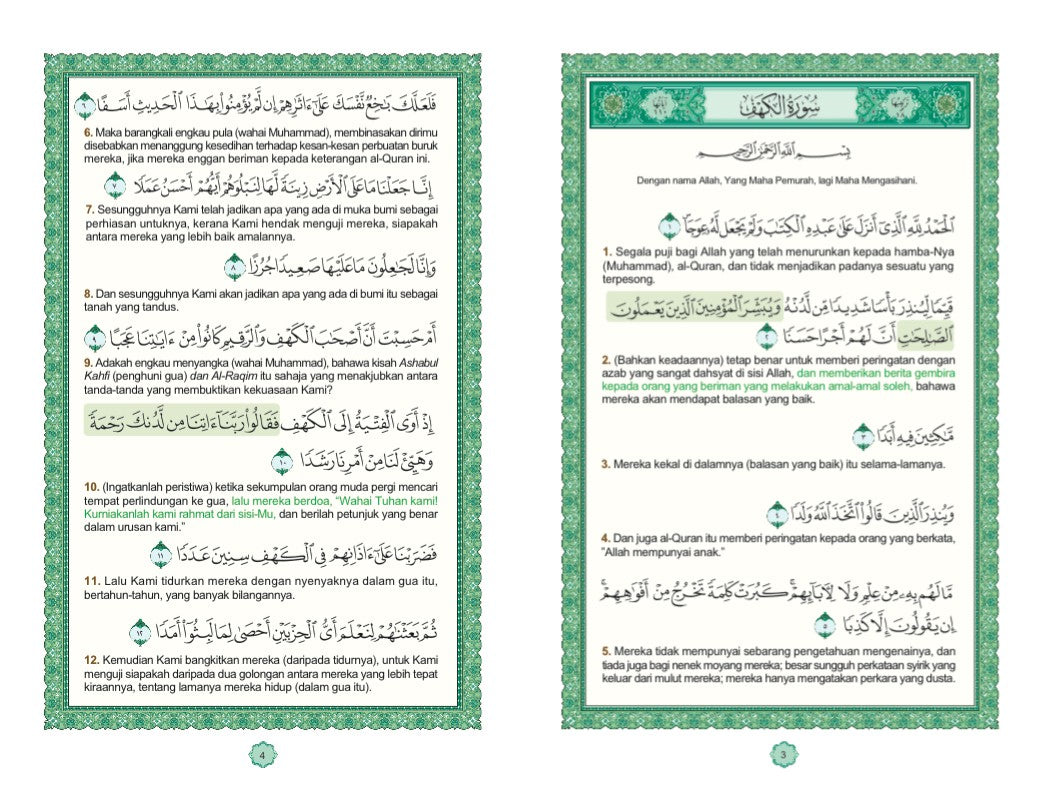 سُورَةُ الْكَهْفِ
بِسْمِ اللَّهِ الرَّحْمَٰنِ الرَّحِيمِ
Dengan nama Allah, Yang Maha Pemurah, lagi Maha Mengasihani.
الْحَمْدُ لِلَّهِ الَّذِي أَنْزَلَ عَلَىٰ عَبْدِهِ الْكِتَٰبَ وَلَمْ يَجْعَل لَّهُۥ عِوَجَا ۜ ١
1. Segala puji bagi Allah yang telah menurunkan kepada hamba-Nya
(Muhammad), al-Quran, dan tidak menjadikan padanya sesuatu yang
terpesong.
قَيِّمًا لِّيُنذِرَ بَأْسًا شَدِيدًا مِّن لَّدُنْهُ وَيُبَشِّرَ الْمُؤْمِنِينَ الَّذِينَ يَعْمَلُونَ
الصَّٰلِحَٰتِ أَنَّ لَهُمْ أَجْرًا حَسَنًا ٢
2. (Bahkan keadaannya) tetap benar untuk memberi peringatan dengan
azab yang sangat dahsyat di sisi Allah, dan memberikan berita gembira
kepada orang yang beriman yang melakukan amal-amal soleh, bahawa
mereka akan mendapat balasan yang baik.
مَّٰكِثِينَ فِيهِ أَبَدًا ٣
3. Mereka kekal di dalamnya (balasan yang baik) itu selama-lamanya.
وَيُنذِرَ الَّذِينَ قَالُوا۟ اتَّخَذَ اللَّهُ وَلَدًا ٤
4. Dan juga al-Quran itu memberi peringatan kepada orang yang berkata,
"Allah mempunyai anak."
مَّا لَهُم بِهِۦ مِنْ عِلْمٍ وَلَا لِأٓبَآئِهِمْ ۚ كَبُرَتْ كَلِمَةً تَخْرُجُ مِنْ أَفْوَٰهِهِمْ ۚ
إِن يَقُولُونَ إِلَّا كَذِبًا ٥
5. Mereka tidak mempunyai sebarang pengetahuan mengenainya, dan
tiada juga bagi nenek moyang mereka; besar sungguh perkataan syirik yang
keluar dari mulut mereka; mereka hanya mengatakan perkara yang dusta.
3
فَلَعَلَّكَ بَٰخِعٌ نَّفْسَكَ عَلَىٰٓ ءَاثَٰرِهِمْ إِن لَّمْ يُؤْمِنُوا۟ بِهَٰذَا الْحَدِيثِ أَسَفًا ٦
6. Maka barangkali engkau pula (wahai Muhammad), membinasakan dirimu
disebabkan menanggung kesedihan terhadap kesan-kesan perbuatan buruk
mereka, jika mereka enggan beriman kepada keterangan al-Quran ini.
إِنَّا جَعَلْنَا مَا عَلَى الْأَرْضِ زِينَةً لَّهَا لِنَبْلُوَهُمْ أَيُّهُمْ أَحْسَنُ عَمَلًا ٧
7. Sesungguhnya Kami telah jadikan apa yang ada di muka bumi sebagai
perhiasan untuknya, kerana Kami hendak menguji mereka, siapakah
antara mereka yang lebih baik amalannya.
وَإِنَّا لَجَٰعِلُونَ مَا عَلَيْهَا صَعِيدًا جُرُزًا ٨
8. Dan sesungguhnya Kami akan jadikan apa yang ada di bumi itu sebagai
tanah yang tandus.
أَمْ حَسِبْتَ أَنَّ أَصْحَٰبَ الْكَهْفِ وَالرَّقِيمِ كَانُوا۟ مِنْ ءَايَٰتِنَا عَجَبًا ٩
9. Adakah engkau menyangka (wahai Muhammad), bahawa kisah Ashabul
Kahfi (penghuni gua) dan Al-Raqim itu sahaja yang menakjubkan antara
tanda-tanda yang membuktikan kekuasaan Kami?
إِذْ أَوَى الْفِتْيَةُ إِلَى الْكَهْفِ فَقَالُوا۟ رَبَّنَآ ءَاتِنَا مِن لَّدُنكَ رَحْمَةً
وَهَيِّئْ لَنَا مِنْ أَمْرِنَا رَشَدًا ١٠
10. (Ingatkanlah peristiwa) ketika sekumpulan orang muda pergi mencari
tempat perlindungan ke gua, lalu mereka berdoa, "Wahai Tuhan kami!
Kurniakanlah kami rahmat dari sisi-Mu, dan berilah petunjuk yang benar
dalam urusan kami."
فَضَرَبْنَا عَلَىٰٓ ءَاذَانِهِمْ فِى الْكَهْفِ سِنِينَ عَدَدًا ١١
11. Lalu Kami tidurkan mereka dengan nyenyaknya dalam gua itu,
bertahun-tahun, yang banyak bilangannya.
ثُمَّ بَعَثْنَٰهُمْ لِنَعْلَمَ أَىُّ الْحِزْبَيْنِ أَحْصَىٰ لِمَا لَبِثُوٓا۟ أَمَدًا ١٢
12. Kemudian Kami bangkitkan mereka (daripada tidurnya), untuk Kami
menguji siapakah daripada dua golongan antara mereka yang lebih tepat
kiraannya, tentang lamanya mereka hidup (dalam gua itu).
4